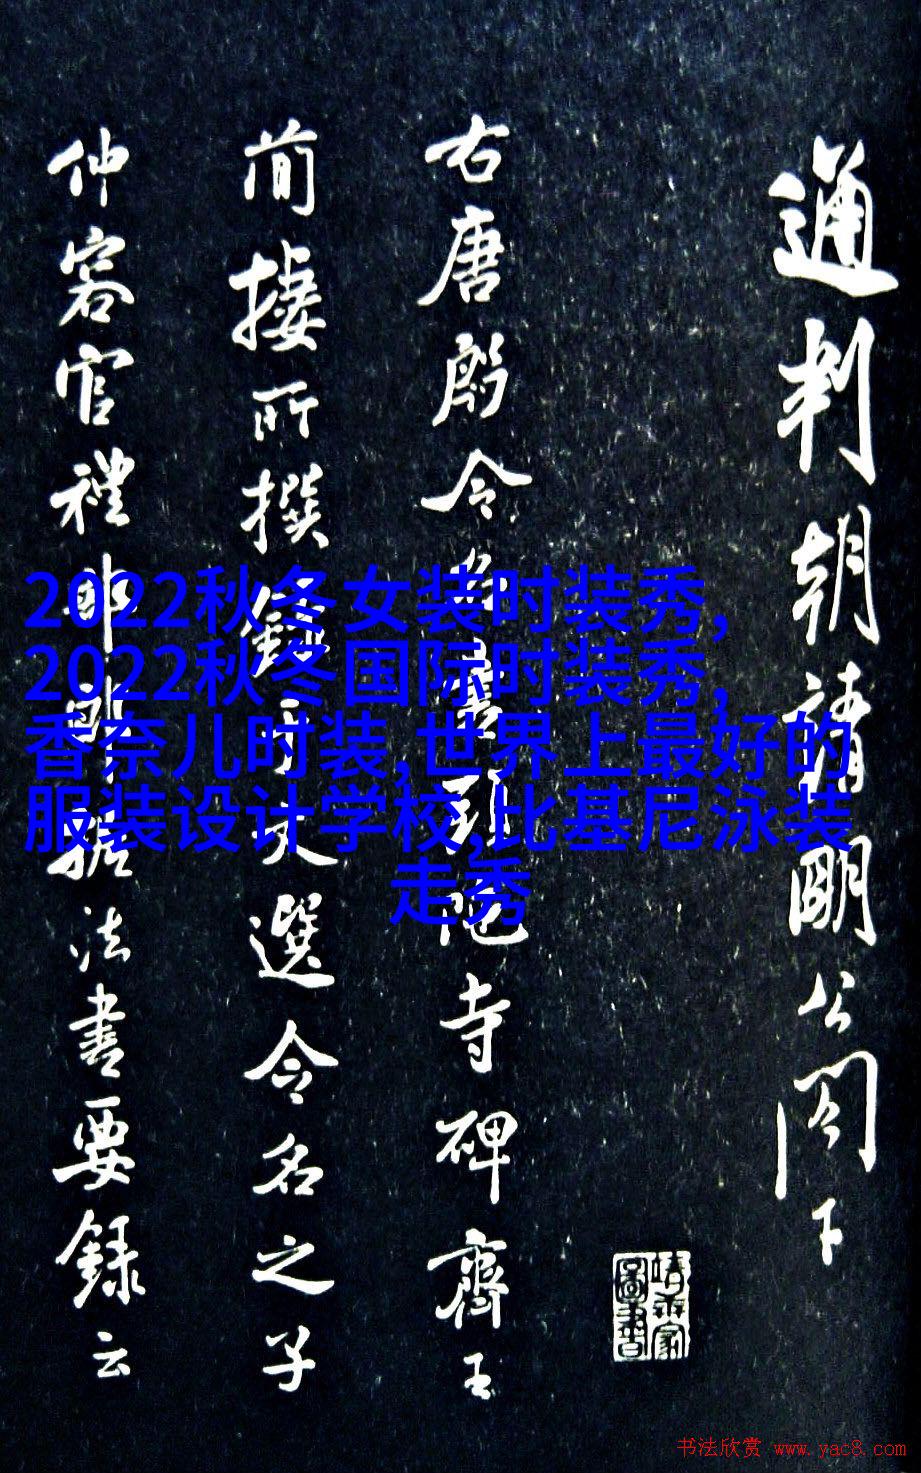 通判朝請明公閤下
右唐殷令名書頭陁寺碑齊王
簡棲所撰錄于文選令名之子
仲容官禮部郎據法書要録云
2022秋冬女装时装秀,
2022秋冬国际时装秀,
香奈儿时装,世界上最好的
服装设计学校,比基尼泳装
走秀
书法欣赏 www.yac8.com